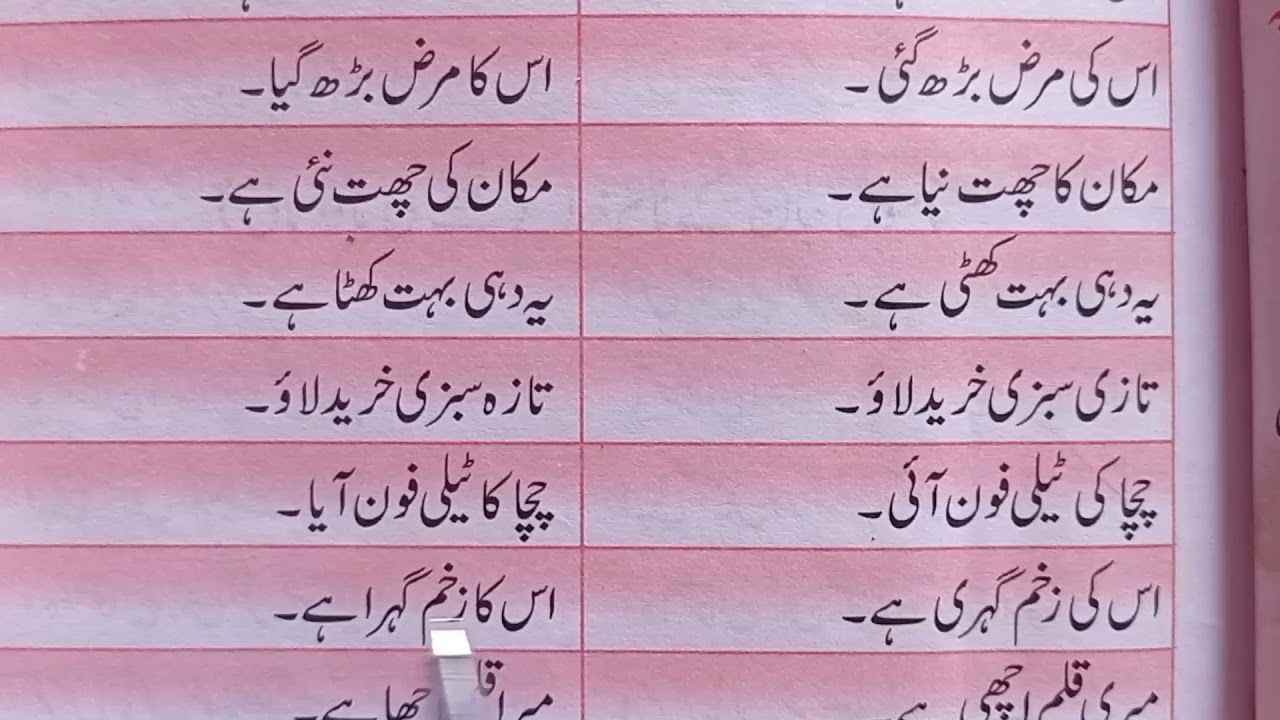 اس کی مرض بڑھ گئی۔ اس کا مرض بڑھ گیا۔
مکان کا چھت نیا ہے۔ مکان کی چھت نئی ہے۔
یہ دہی بہت کھٹی ہے۔ یہ دہی بہت کھٹا ہے۔
تازی سبزی خرید لاؤ۔ تازہ سبزی خرید لاؤ۔
چچا کی ٹیلی فون آئی۔ چچا کا ٹیلی فون آیا۔
اس کی زخم گہری ہے۔ اس کا زخم گہرا ہے۔
میری قلم اچھی ہے۔ میرا